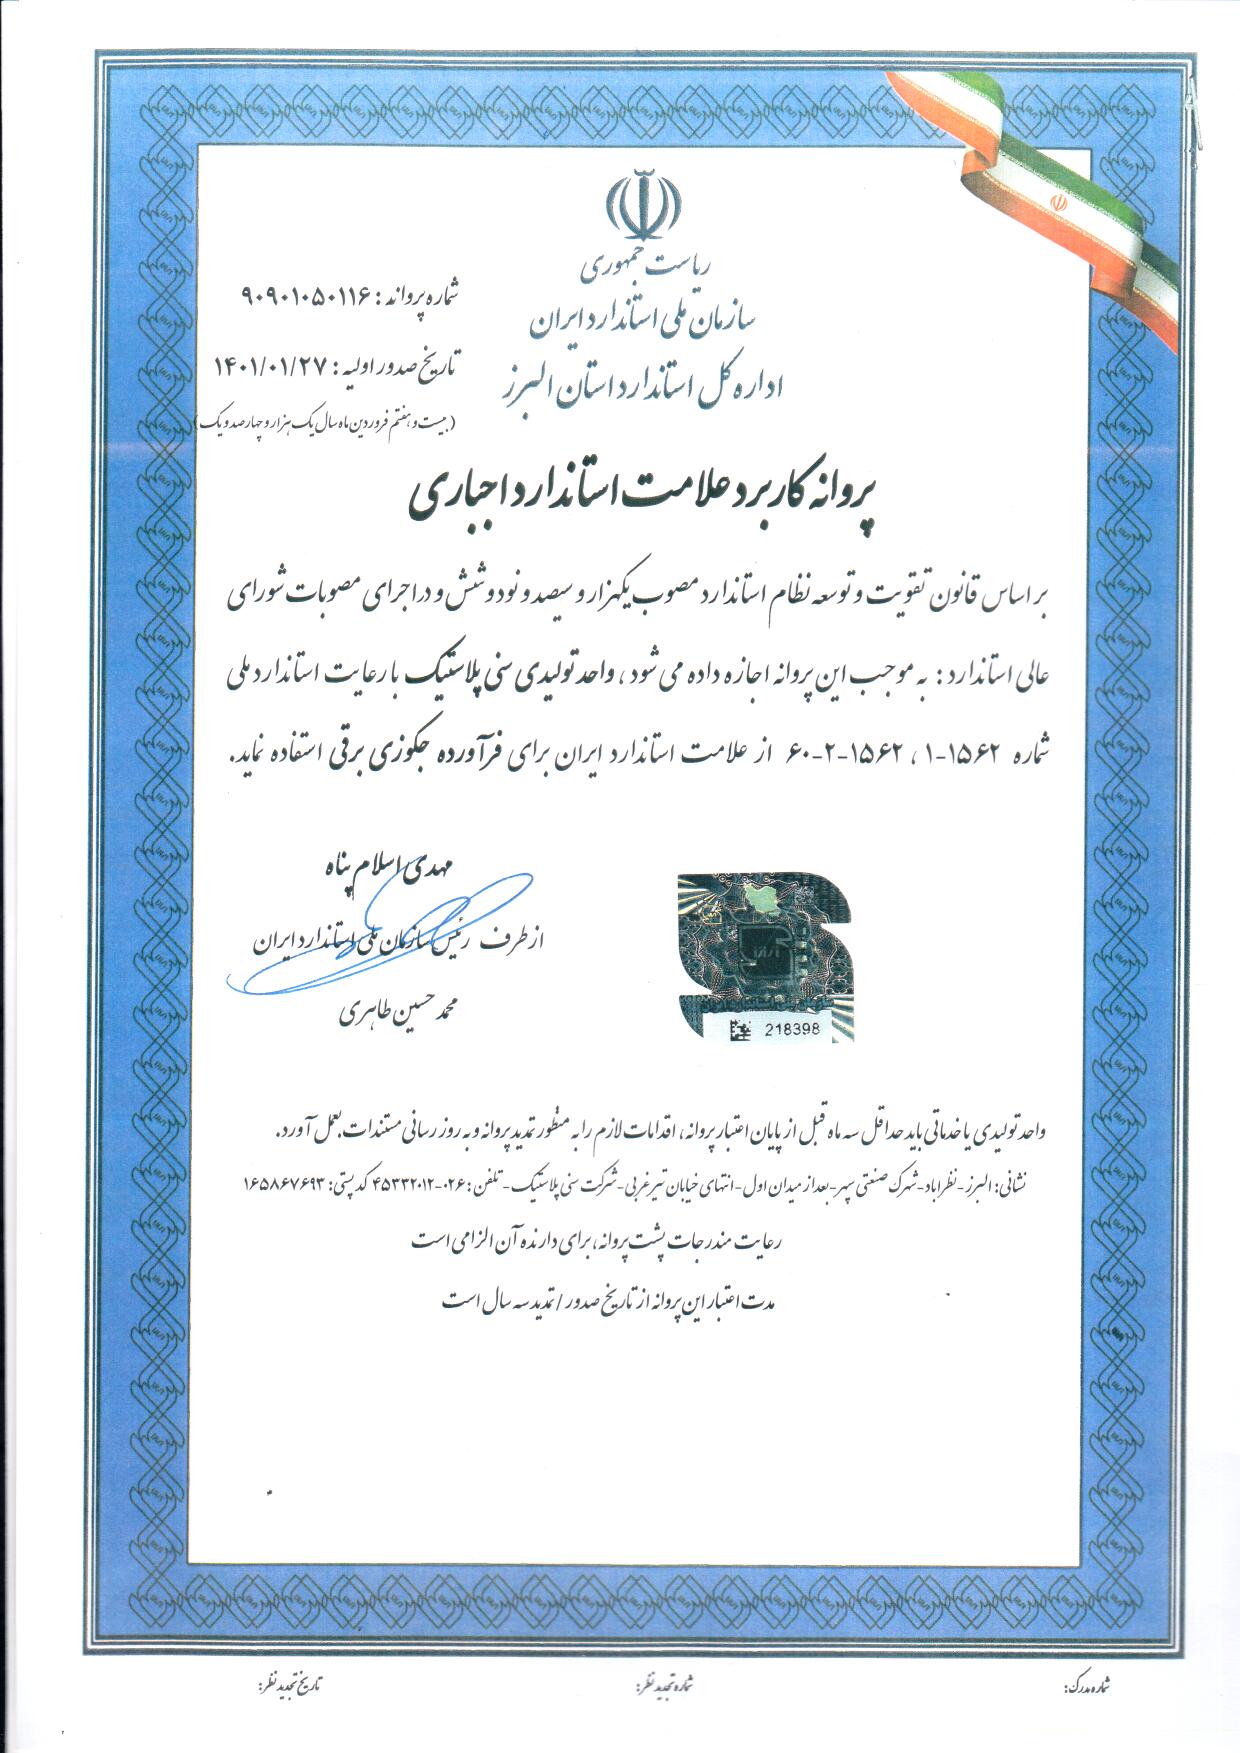 ریاست جمهوری
سازمان ملی استاندارد ایران
اداره کل استاندارد استان البرز
شماره پروانه : ۹۰۹۰۱۰۵۰۱۱۶
تاریخ صدور اولیه : ۱۴۰۱/۰۱/۲۷
(بیست و هفتم فروردین ماه سال یک هزار و چهارصد و یک)
پروانه کاربرد علامت استاندارد اجباری
بر اساس قانون تقویت و توسعه نظام استاندارد مصوب یکهزار و سیصد و نود و شش و در اجرای مصوبات شورای
عالی استاندارد : به موجب این پروانه اجازه داده می شود ، واحد تولیدی سنی پلاستیک با رعایت استاندارد ملی
شماره ۱۵۶۲-۱ ، ۱۵۶۲-۲-۶۰ از علامت استاندارد ایران برای فرآورده جکوزی برقی استفاده نماید.
مهدی اسلام پناه
از طرف رئیس سازمان ملی استاندارد ایران
محمد حسین طاهری
218398
واحد تولیدی یا خدماتی باید حداقل سه ماه قبل از پایان اعتبار پروانه، اقدامات لازم را به منظور تمدید پروانه و به روز رسانی مستندات بعمل آورد.
نشانی: البرز - نظرآباد - شهرک صنعتی سپهر - بعد از میدان اول - انتهای خیابان تیر غربی - شرکت سنی پلاستیک - تلفن : ۰۲۶-۴۵۳۳۲۰۱۲ کد پستی: ۱۶۵۸۶۷۶۹۳
رعایت مندرجات پشت پروانه، برای دارنده آن الزامی است
مدت اعتبار این پروانه از تاریخ صدور / تمدید سه سال است
شماره مدرک:
شماره تجدید نظر:
تاریخ تجدید نظر: